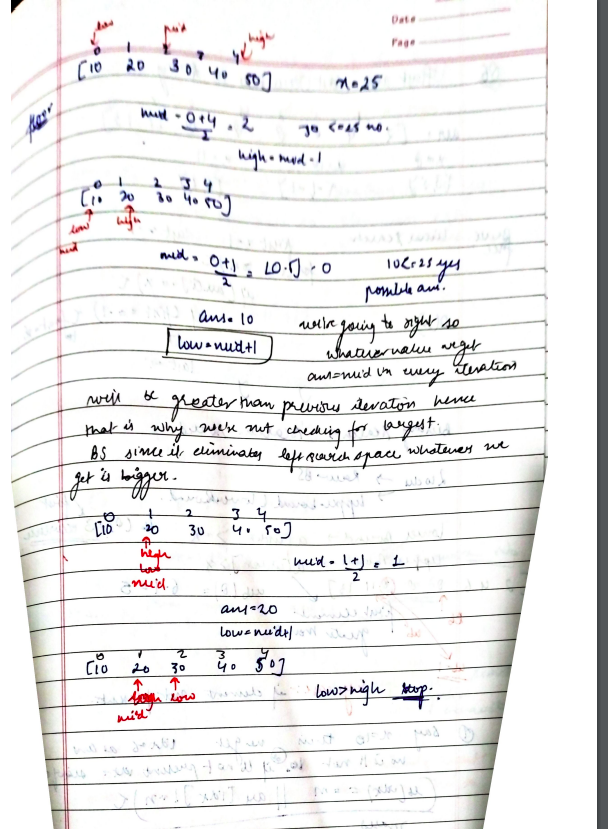 Date
Page
low mid high
0 1 2 3 4
[10 20 30 40 50] x=25
mid = 0+4/2 = 2 30 <=25 no.
high = mid-1
0 1 2 3 4
[10 20 30 40 50]
low high
mid
mid = 0+1/2 = ⌊0.5⌋ = 0 10<=25 yes
possible ans.
ans = 10 we're going to right so
low=mid+1 whatever value we get
ans=mid in every iteration
will be greater than previous iteration hence
that is why we're not checking for largest.
BS since it eliminates left search space whatever we
get is bigger.
0 1 2 3 4
[10 20 30 40 50]
high
low
mid
mid = 1+1/2 = 1
ans=20
low=mid+1
0 1 2 3 4
[10 20 30 40 50]
high low
mid
low>high stop.